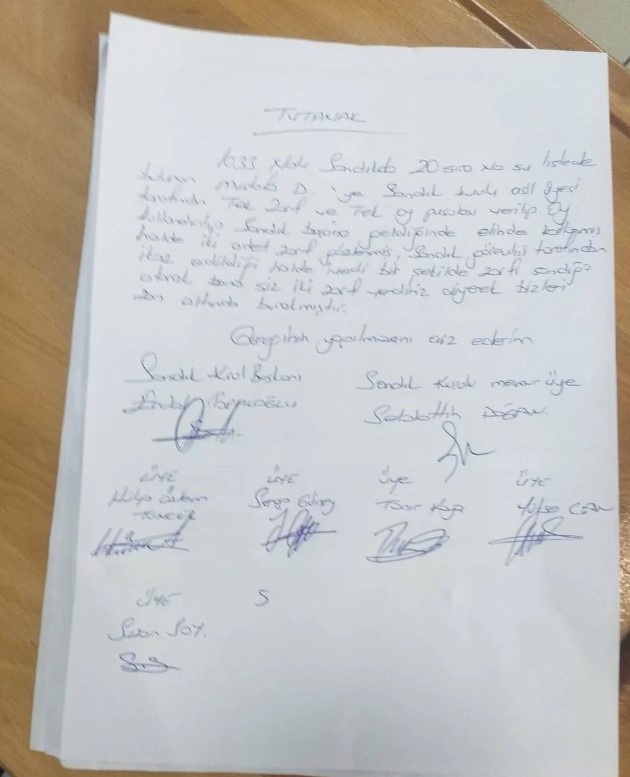 TUTANAK
1033 Nolu Sandıkta 20 sıra No su listede
bulunan Mustafa D. 'ye Sandık kurulu asil üyesi
tarafından Tek zarf ve Tek oy pusulası verilip. Oy
kullanılıp Sandık başına geldiğinde elinde
halde iki adet zarf Sandık görevlisi tarafından
ikaz edildiği halde bir şekilde zarfı sandığa
atarak bana siz iki zarf verdiniz diyerek bizleri
zan altında bırakmıştır.
Gereğinin yapılmasını arz ederim
Sandık Kurul Başkanı
Sandık Kurulu memur üye
Selahattin DOĞAN
ÜYE ÜYE Üye ÜYE
TUNCER Kaya
ÜYE S
SOY.